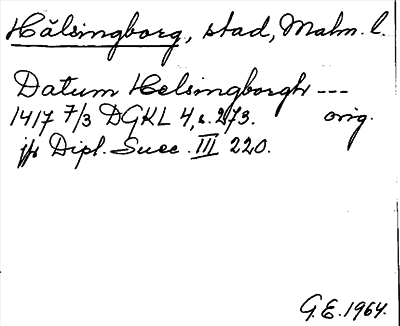 Hälsingborg, stad, Malm. l.
Datum Helsingborgh ---
1417 7/3 DGKL 4, s. 273. orig.
jfr Dipl. Suec. III 220.
G.E. 1964.